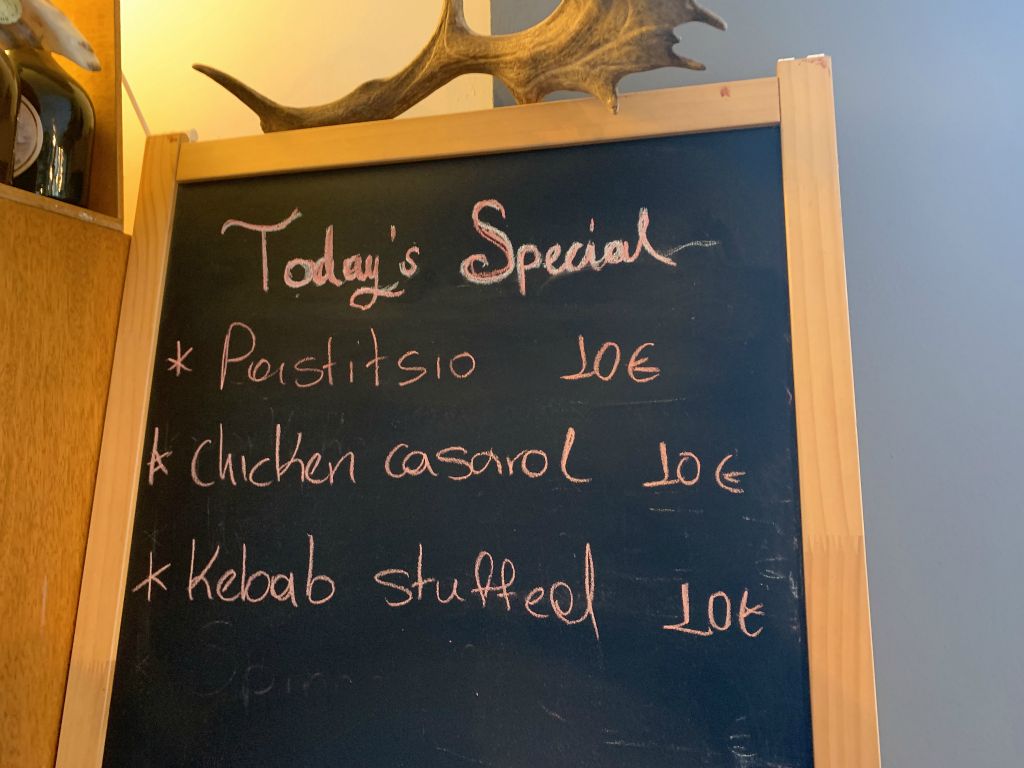 Today's Special
* Pasititsio 10€
* Chicken casarol 10€
* Kebab stuffed 10€